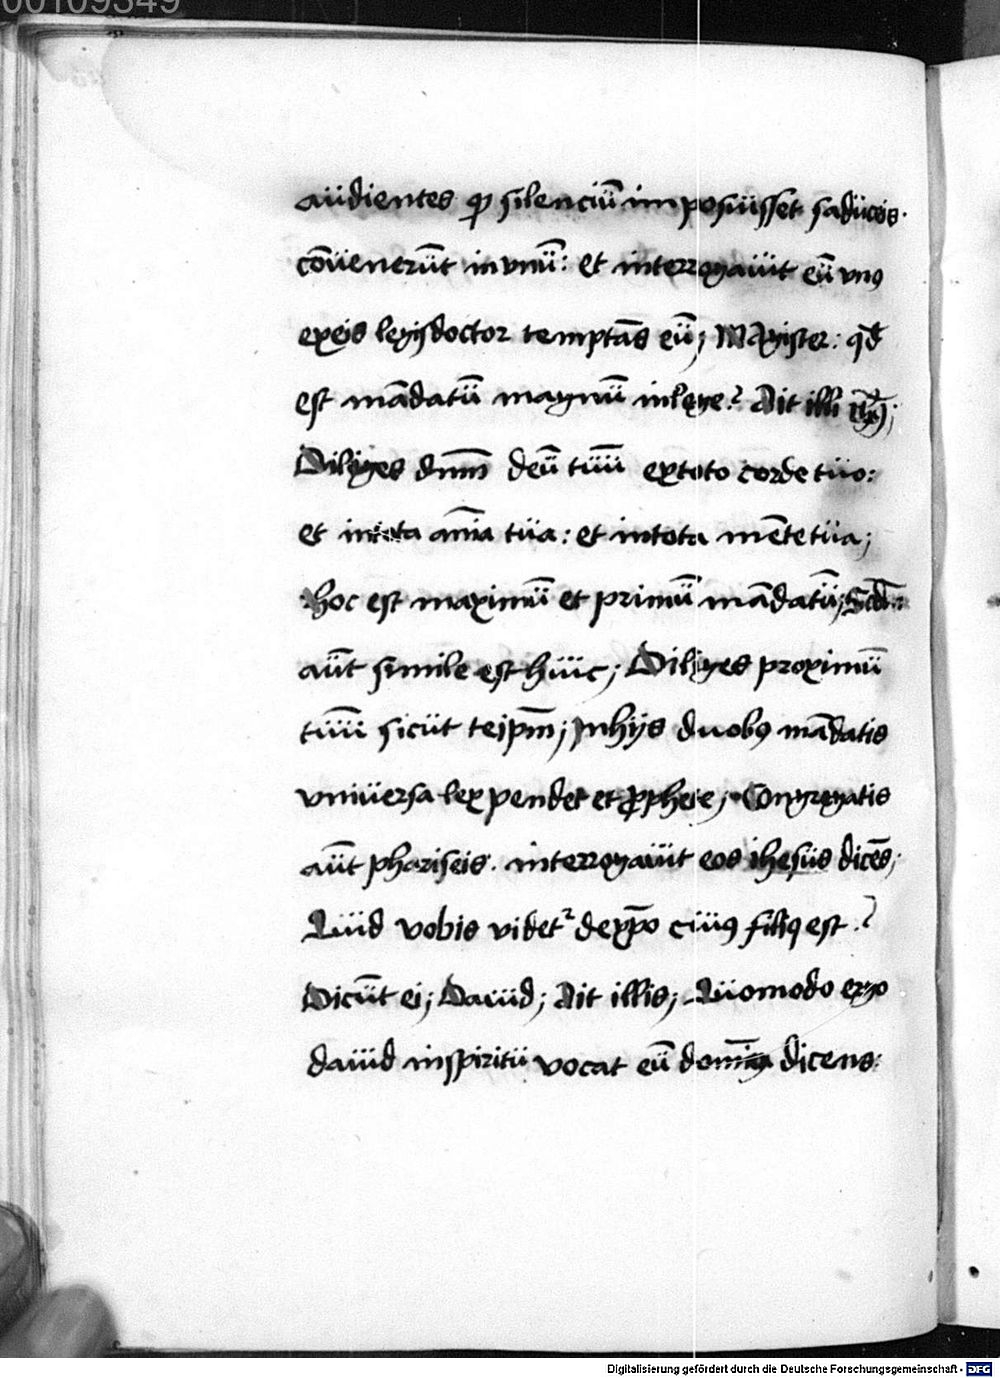 00109349
aüdientes ꝙ silenciū imposüisset sadüceis.
cōüenerūt in vnū: et interrogaüit eū vnꝰ
ex eis legis doctor temptās eū; Magister: qd
est mādatū magnū in lege? Ait illi
Diliges dnm̄ deū tüū ex toto corde tüo:
et in tota aīa tüa: et in tota mēte tüa;
Hoc est maximū et primū mādatū; Scdm̄
aūt simile est hüic; Diliges proximū
tüū sicüt teip̄m; In hijs duobꝰ mādatis
vniüersa lex pendet et ꝓphete; Congregatis
aūt phariseis. interrogaüit eos ihesüs dicēs;
Qüid vobis videtᷣ de xp̄o cüiꝰ filiꝰ est.?
Dicūt ei; Dauid; Ait illis; Qüomodo ergo
daüid in spiritü vocat eū dicens:
Digitalisierung gefördert durch die Deutsche Forschungsgemeinschaft - DFG